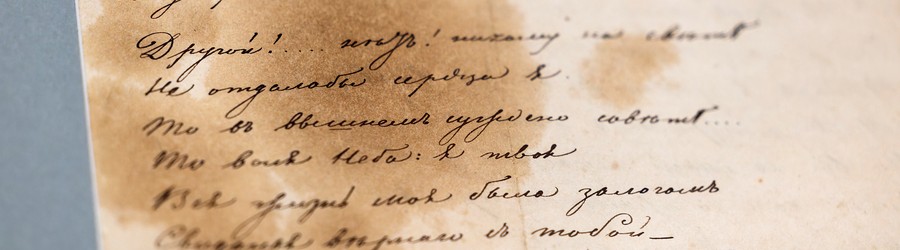 Другой!.... нѣтъ! никому на свѣтѣ
Не отдалабы сердца я.
То въ вышнемъ суждено совѣтѣ....
То воля Неба: я твоя
Вся жизнь моя была залогомъ
Свиданья вѣрнаго съ тобой —